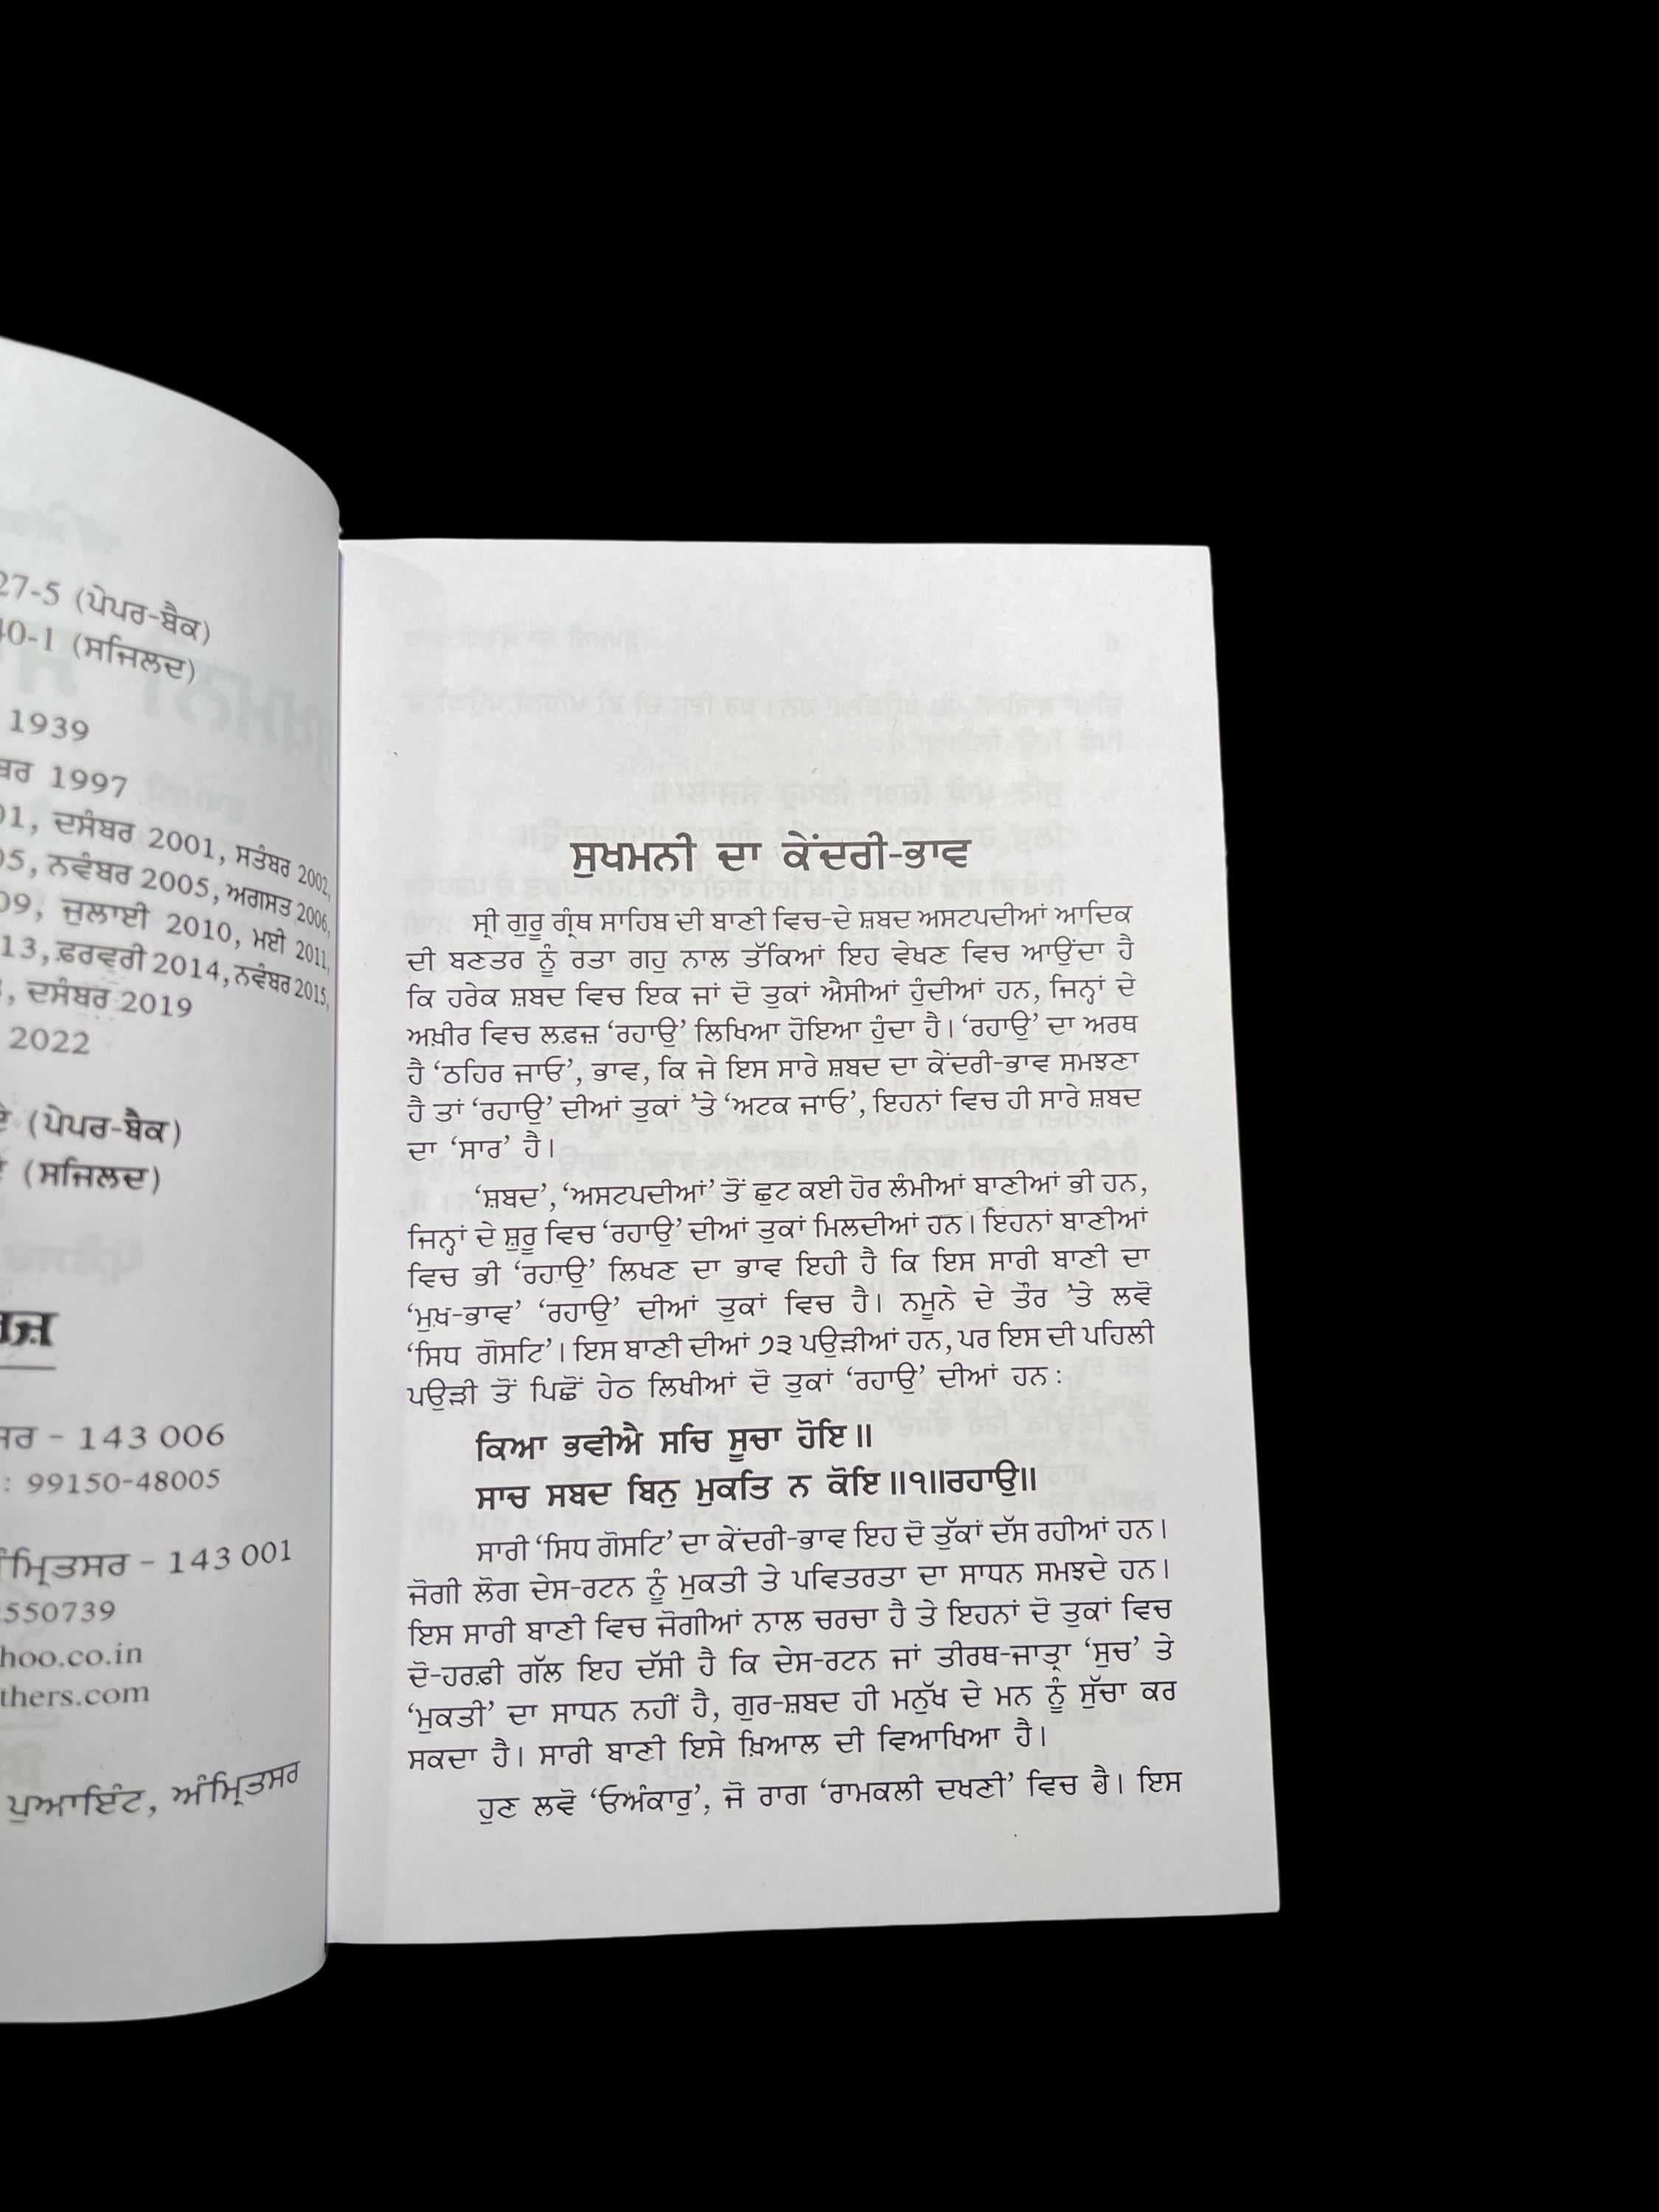 27-5 (ਪੇਪਰ-ਬੈਕ)
40-1 (ਸਜਿਲਦ)
1939
1997
01, ਦਸੰਬਰ 2001, ਸਤੰਬਰ 2002,
05, ਨਵੰਬਰ 2005, ਅਗਸਤ 2006,
09, ਜੁਲਾਈ 2010, ਮਈ 2011,
13, ਫ਼ਰਵਰੀ 2014, ਨਵੰਬਰ 2015,
, ਦਸੰਬਰ 2019
2022
(ਪੇਪਰ-ਬੈਕ)
(ਸਜਿਲਦ)
- 143 006
: 99150-48005
ਅੰਮ੍ਰਿਤਸਰ - 143 001
550739
hoo.co.in
thers.com
ਪੁਆਇੰਟ, ਅੰਮ੍ਰਿਤਸਰ
ਸੁਖਮਨੀ ਦਾ ਕੇਂਦਰੀ-ਭਾਵ
ਸ੍ਰੀ ਗੁਰੂ ਗ੍ਰੰਥ ਸਾਹਿਬ ਦੀ ਬਾਣੀ ਵਿਚ-ਦੇ ਸ਼ਬਦ ਅਸਟਪਦੀਆਂ ਆਦਿਕ
ਦੀ ਬਣਤਰ ਨੂੰ ਰਤਾ ਗਹੁ ਨਾਲ ਤੱਕਿਆਂ ਇਹ ਵੇਖਣ ਵਿਚ ਆਉਂਦਾ ਹੈ
ਕਿ ਹਰੇਕ ਸ਼ਬਦ ਵਿਚ ਇਕ ਜਾਂ ਦੋ ਤੁਕਾਂ ਐਸੀਆਂ ਹੁੰਦੀਆਂ ਹਨ, ਜਿਨ੍ਹਾਂ ਦੇ
ਅਖ਼ੀਰ ਵਿਚ ਲਫ਼ਜ਼ ‘ਰਹਾਉ’ ਲਿਖਿਆ ਹੋਇਆ ਹੁੰਦਾ ਹੈ। ‘ਰਹਾਉ’ ਦਾ ਅਰਥ
ਹੈ ‘ਠਹਿਰ ਜਾਓ’, ਭਾਵ, ਕਿ ਜੇ ਇਸ ਸਾਰੇ ਸ਼ਬਦ ਦਾ ਕੇਂਦਰੀ-ਭਾਵ ਸਮਝਣਾ
ਹੈ ਤਾਂ ‘ਰਹਾਉ’ ਦੀਆਂ ਤੁਕਾਂ ’ਤੇ ‘ਅਟਕ ਜਾਓ’, ਇਹਨਾਂ ਵਿਚ ਹੀ ਸਾਰੇ ਸ਼ਬਦ
ਦਾ ‘ਸਾਰ’ ਹੈ।
‘ਸ਼ਬਦ’, ‘ਅਸਟਪਦੀਆਂ’ ਤੋਂ ਛੁਟ ਕਈ ਹੋਰ ਲੰਮੀਆਂ ਬਾਣੀਆਂ ਭੀ ਹਨ,
ਜਿਨ੍ਹਾਂ ਦੇ ਸ਼ੁਰੂ ਵਿਚ ‘ਰਹਾਉ’ ਦੀਆਂ ਤੁਕਾਂ ਮਿਲਦੀਆਂ ਹਨ। ਇਹਨਾਂ ਬਾਣੀਆਂ
ਵਿਚ ਭੀ ‘ਰਹਾਉ’ ਲਿਖਣ ਦਾ ਭਾਵ ਇਹੀ ਹੈ ਕਿ ਇਸ ਸਾਰੀ ਬਾਣੀ ਦਾ
‘ਮੁਖ਼-ਭਾਵ’ ‘ਰਹਾਉ’ ਦੀਆਂ ਤੁਕਾਂ ਵਿਚ ਹੈ। ਨਮੂਨੇ ਦੇ ਤੌਰ ’ਤੇ ਲਵੋ
‘ਸਿਧ ਗੋਸਟਿ’। ਇਸ ਬਾਣੀ ਦੀਆਂ ੭੩ ਪਉੜੀਆਂ ਹਨ, ਪਰ ਇਸ ਦੀ ਪਹਿਲੀ
ਪਉੜੀ ਤੋਂ ਪਿਛੋਂ ਹੇਠ ਲਿਖੀਆਂ ਦੋ ਤੁਕਾਂ ‘ਰਹਾਉ’ ਦੀਆਂ ਹਨ :
ਕਿਆ ਭਵੀਐ ਸਚਿ ਸੂਚਾ ਹੋਇ ॥
ਸਾਚ ਸਬਦ ਬਿਨੁ ਮੁਕਤਿ ਨ ਕੋਇ ॥੧॥ਰਹਾਉ॥
ਸਾਰੀ ‘ਸਿਧ ਗੋਸਟਿ’ ਦਾ ਕੇਂਦਰੀ-ਭਾਵ ਇਹ ਦੋ ਤੁੱਕਾਂ ਦੱਸ ਰਹੀਆਂ ਹਨ।
ਜੋਗੀ ਲੋਗ ਦੇਸ-ਰਟਨ ਨੂੰ ਮੁਕਤੀ ਤੇ ਪਵਿਤਰਤਾ ਦਾ ਸਾਧਨ ਸਮਝਦੇ ਹਨ।
ਇਸ ਸਾਰੀ ਬਾਣੀ ਵਿਚ ਜੋਗੀਆਂ ਨਾਲ ਚਰਚਾ ਹੈ ਤੇ ਇਹਨਾਂ ਦੋ ਤੁਕਾਂ ਵਿਚ
ਦੋ-ਹਰਫ਼ੀ ਗੱਲ ਇਹ ਦੱਸੀ ਹੈ ਕਿ ਦੇਸ-ਰਟਨ ਜਾਂ ਤੀਰਥ-ਜਾਤ੍ਰਾ ‘ਸੁਚ’ ਤੇ
‘ਮੁਕਤੀ’ ਦਾ ਸਾਧਨ ਨਹੀਂ ਹੈ, ਗੁਰ-ਸ਼ਬਦ ਹੀ ਮਨੁੱਖ ਦੇ ਮਨ ਨੂੰ ਸੁੱਚਾ ਕਰ
ਸਕਦਾ ਹੈ। ਸਾਰੀ ਬਾਣੀ ਇਸੇ ਖ਼ਿਆਲ ਦੀ ਵਿਆਖਿਆ ਹੈ।
ਹੁਣ ਲਵੋ ‘ਓਅੰਕਾਰੁ’, ਜੋ ਰਾਗ ‘ਰਾਮਕਲੀ ਦਖਣੀ’ ਵਿਚ ਹੈ। ਇਸ